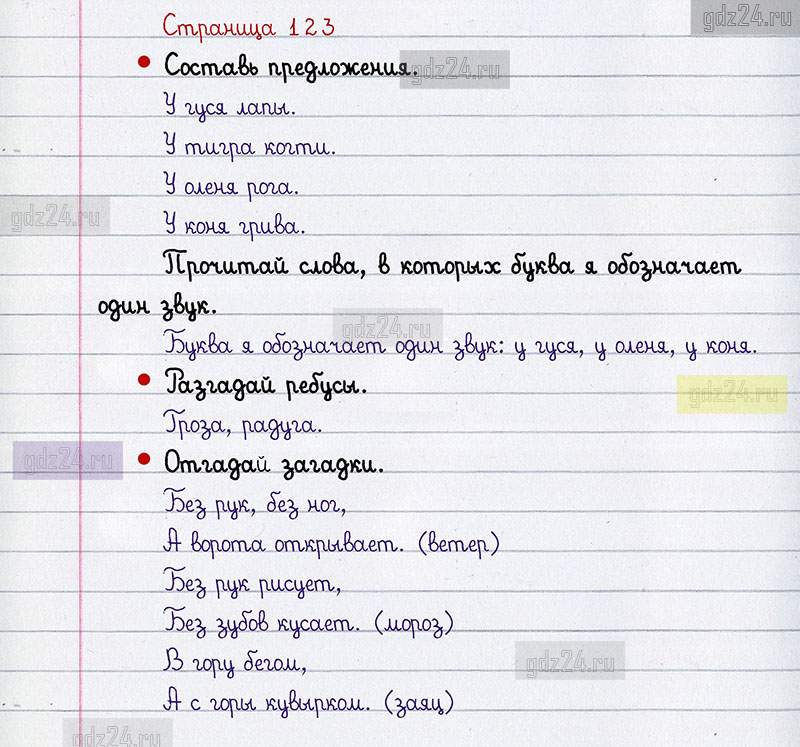 gdz24.ru
Страница 123
• Составь предложения.
gdz24.ru
У гуся лапы.
У тигра когти.
У оленя рога.
gdz24.ru
У коня грива.
Прочитай слова, в которых буква я обозначает
один звук.
gdz24.ru
Буква я обозначает один звук: у гуся, у оленя, у коня.
• Разгадай ребусы.
gdz24.ru
Гроза, радуга.
• Отгадай загадки.
gdz24.ru
Без рук, без ног,
А ворота открывает. (ветер)
Без рук рисует,
Без зубов кусает. (мороз)
В гору бегом,
gdz24.ru
А с горы кувырком. (заяц)
gdz24.ru